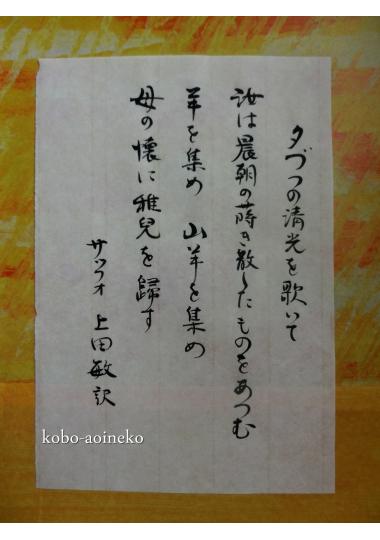 夕づつの清光を歌いて
汝は晨朝の蒔き散したものをあつむ
羊を集め 山羊を集め
母の懐に稚兒を歸す
サツフオ 上田敏訳
kobo-aoineko